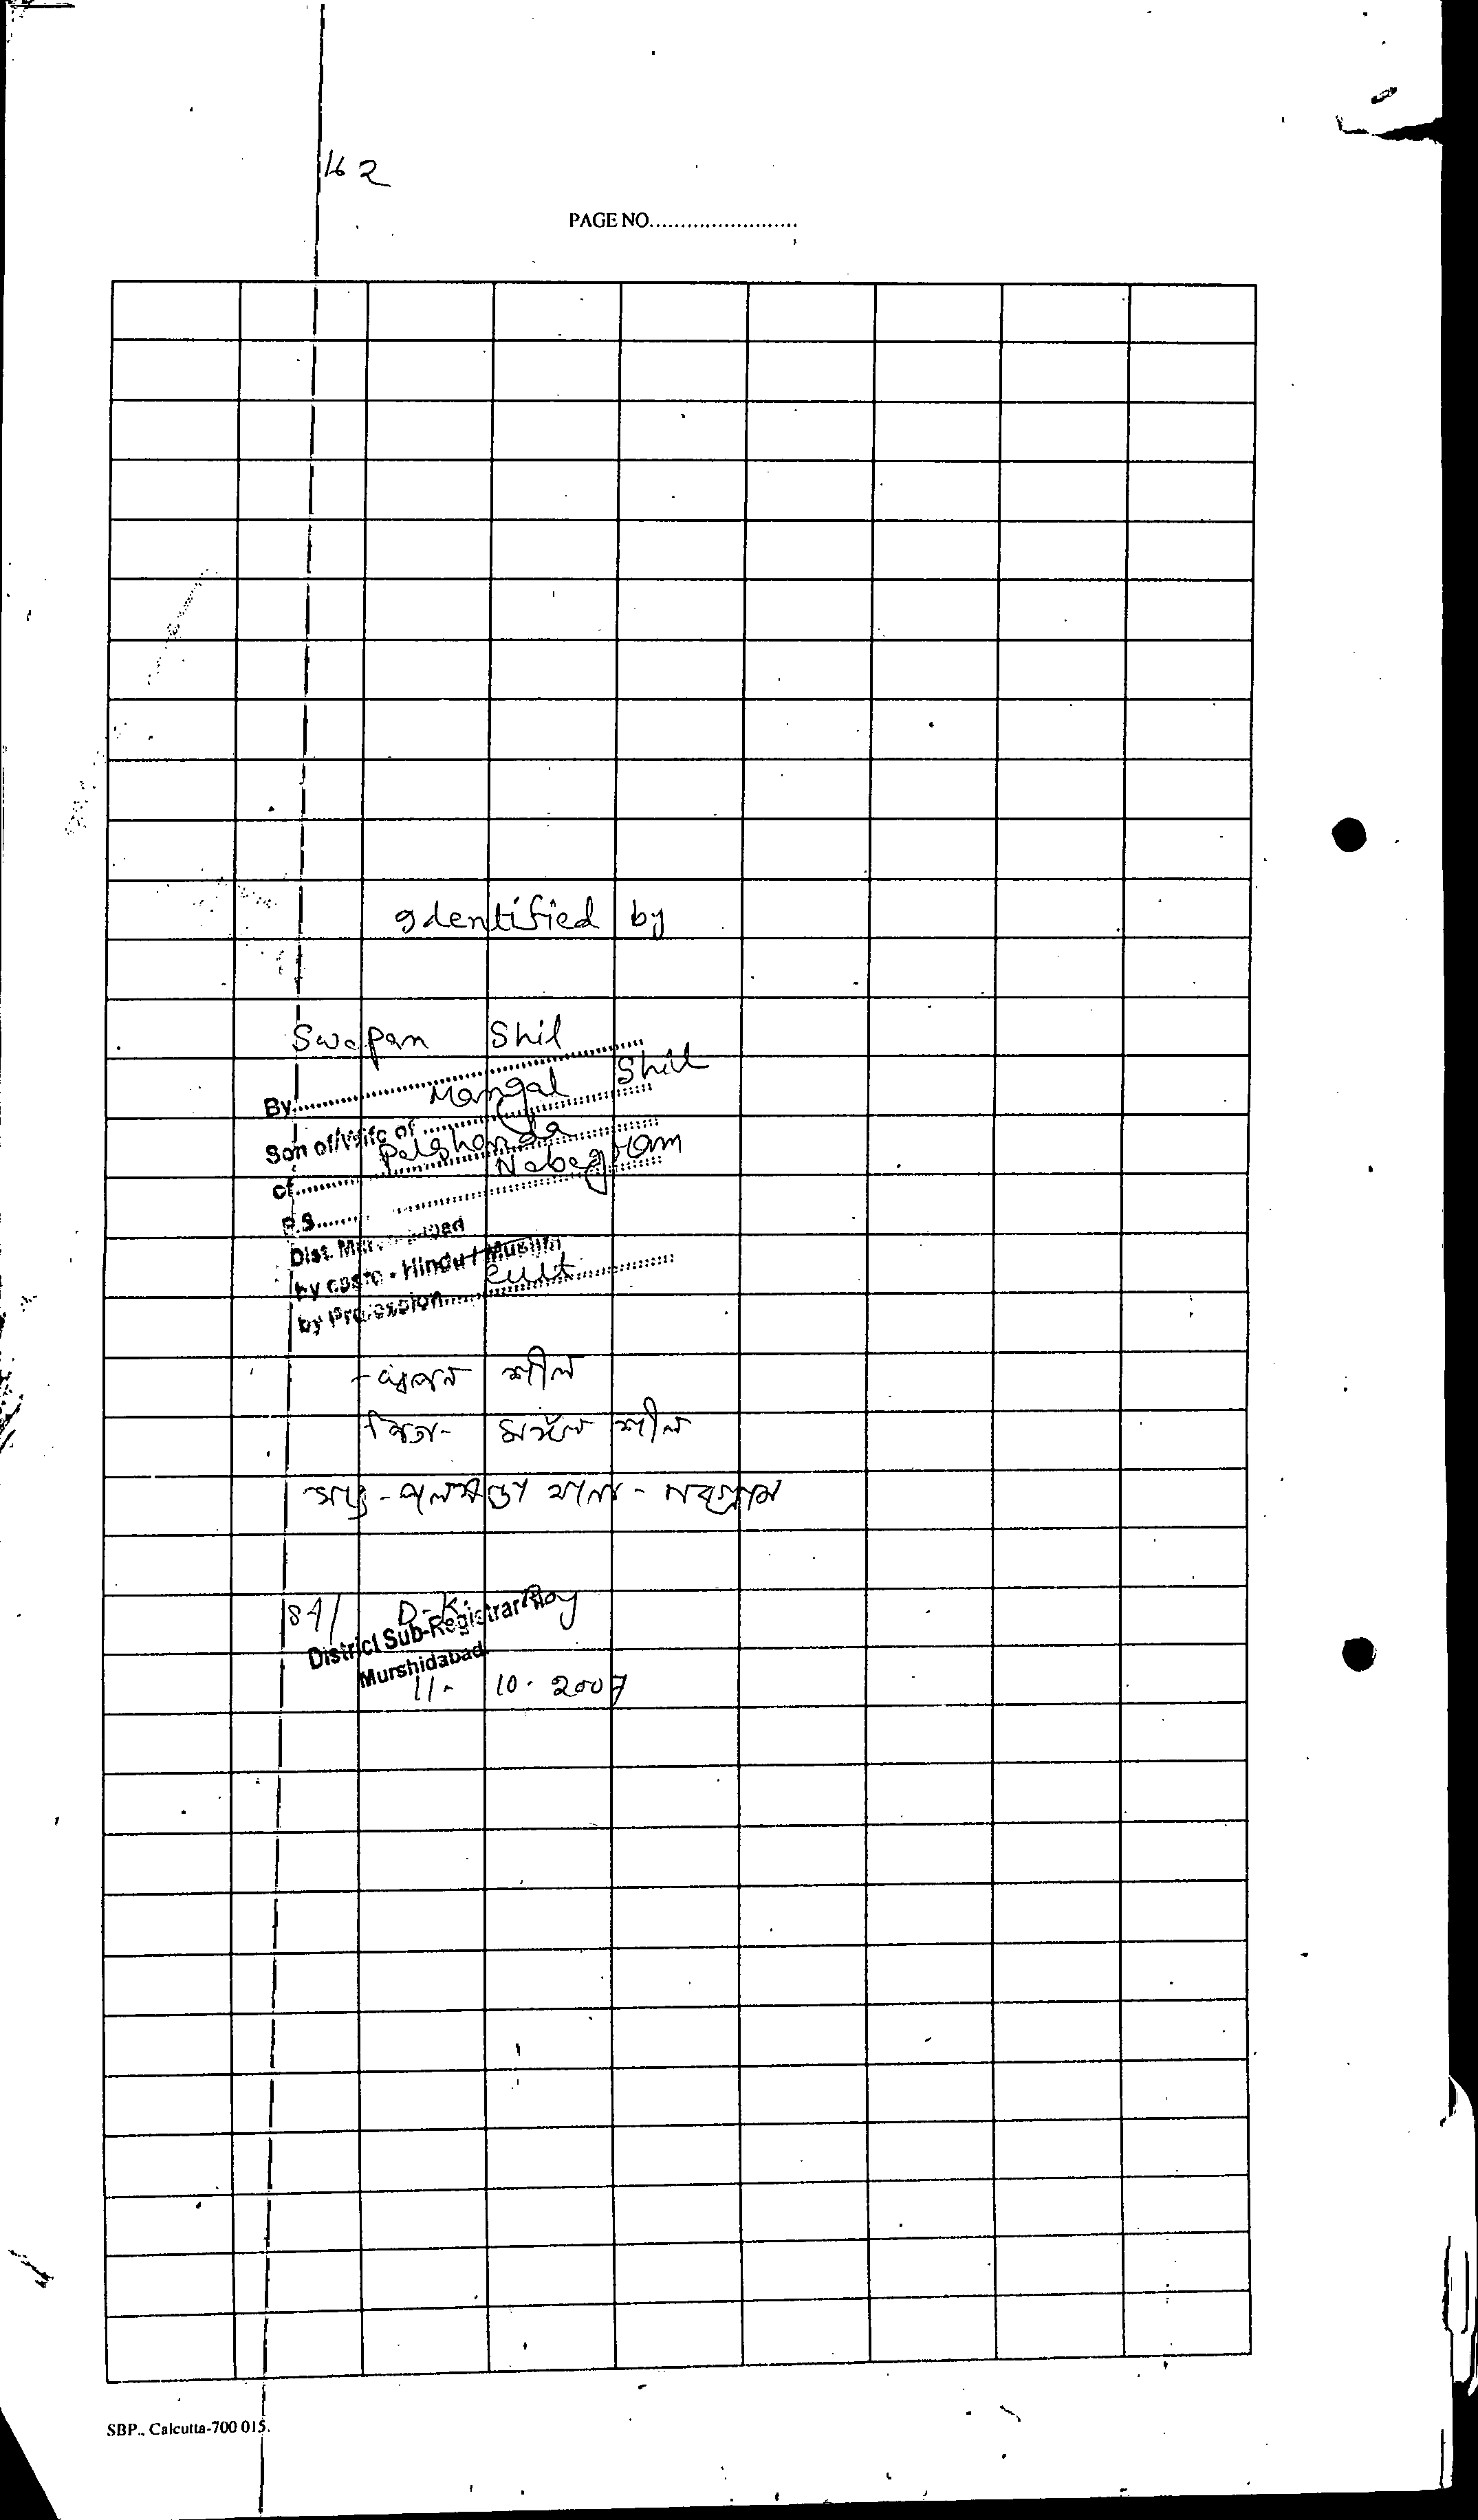 162
PAGE NO........................
Identified by
Swapan Shil
By....................
Mangal Shil
Son of/Wife of....................
Palshanda
of....................
Nabagram
P.S....................
Dist. Murshidabad
by caste - Hindu / Muslim
by Profession.................... Cult
স্বপন শীল
পিতা- মঙ্গল শীল
সাং - পলষণ্ডা থানা - নবগ্রাম
Sd/ D. K. Roy
District Sub-Registrar
Murshidabad
11. 10. 2007
SBP., Calcutta-700 015.